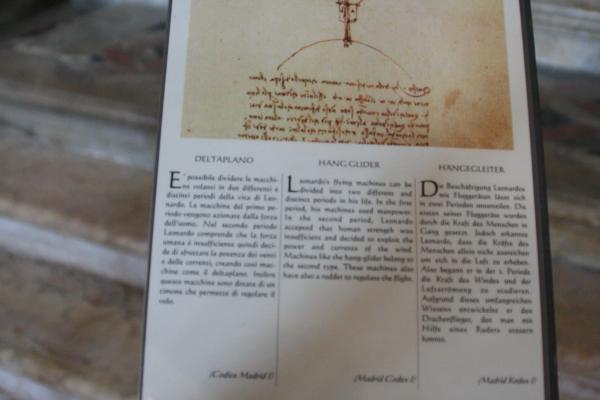 DELTAPLANO
E' possibile dividere le macchi-
ne volanti in due differenti e
distinti periodi della vita di Leo-
nardo. Le macchine del primo pe-
riodo vengono azionate dalla forza
dell'uomo. Nel secondo periodo
Leonardo comprende che la forza
umana è insufficiente quindi deci-
de di sfruttare la potenza dei venti
e delle correnti, creando così mac-
chine come il deltaplano. Inoltre
queste macchine sono dotate di un
timone che permette di regolare il
volo.
(Codice Madrid I)
HANG GLIDER
Leonardo's flying machines can be
divided into two different and
distinct periods in his life. In the first
period, his machines used manpower.
In the second period, Leonardo
accepted that human strength was
insufficient and decided to exploit the
power and currents of the wind.
Machines like the hang-glider belong to
the second type. These machines also
have also a rudder to regulate the flight.
(Madrid Codex I)
HÄNGEGLEITER
Die Beschäftigung Leonardos
mit Fluggeräten lässt sich
in zwei Perioden unterteilen. Die
ersten seiner Fluggeräte wurden
durch die Kraft des Menschen in
Gang gesetzt. Jedoch erkannte
Leonardo, dass die Kräfte des
Menschen allein nicht ausreichen
um sich in die Luft zu erheben.
Also begann er in der 2. Periode
die Kraft des Windes und der
Luftströmung zu studieren.
Aufgrund dieses umfangreichen
Wissens entwickelte er den
Drachenflieger, den man mit
Hilfe eines Ruders steuern
konnte.
(Madrid Kodex I)